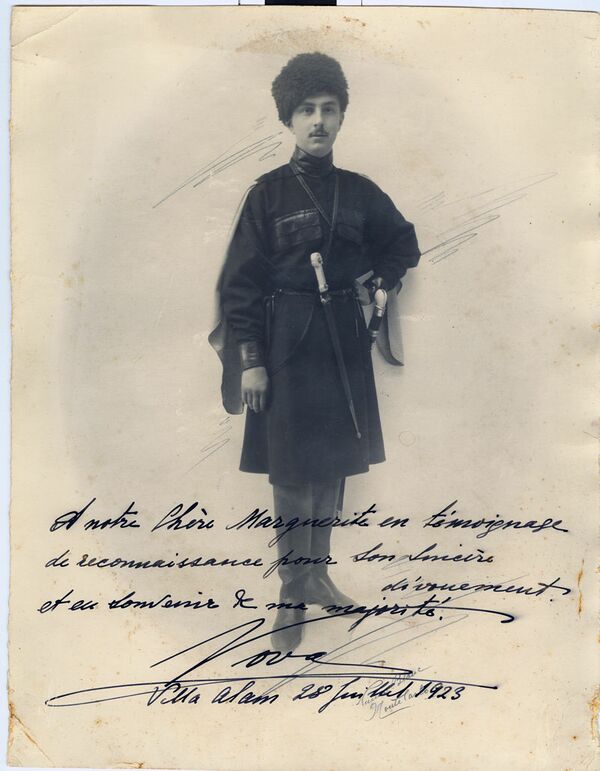 A notre Chère Marguerite en témoignage
de reconnaissance pour Son Sincère
dévouement.
et en souvenir de ma majorité.
Vova
Villa Alam 28 Juillet 1923
Monte Carlo